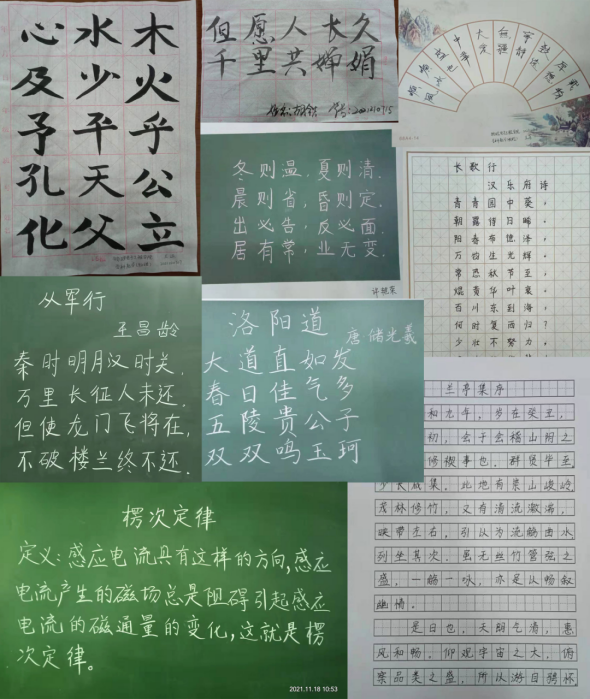 心水木
及少火
予平乎
孔天公
化父立
但愿人长久
千里共婵娟
冬则温,夏则清,
晨则省,昏则定.
出必告,反必面.
居有常,业无变.
长歌行
汉乐府诗
青青园中葵,
朝露待日晞,
阳春布德泽,
万物生光辉,
常恐秋节至,
焜黄华叶衰,
百川东到海,
何时复西归?
少壮不努力,
从军行
王昌龄
秦时明月汉时关,
万里长征人未还.
但使龙门飞将在,
不破楼兰终不还.
洛阳道
唐 储光羲
大道直如发
春日佳气多
五陵贵公子
双双鸣玉珂
兰亭集序
和九年,岁在癸丑,
初,会于会稽山阴之
修禊事也.群贤毕至
少长咸集.此地有崇山峻岭
茂林修竹,又有清流激湍,
映带左右,引以为流觞曲水
列坐其次.虽无丝竹管弦之
盛,一觞一咏,亦足以畅叙
幽情.
是日也,天朗气清,惠
风和畅.仰观宇宙之大,俯
察品类之盛,所以游目骋怀
楞次定律
定义:感应电流具有这样的方向,感应
电流产生的磁场总是阻碍引起感应
电流的磁通量的变化,这就是楞
次定律。
2021.11.18 10:53